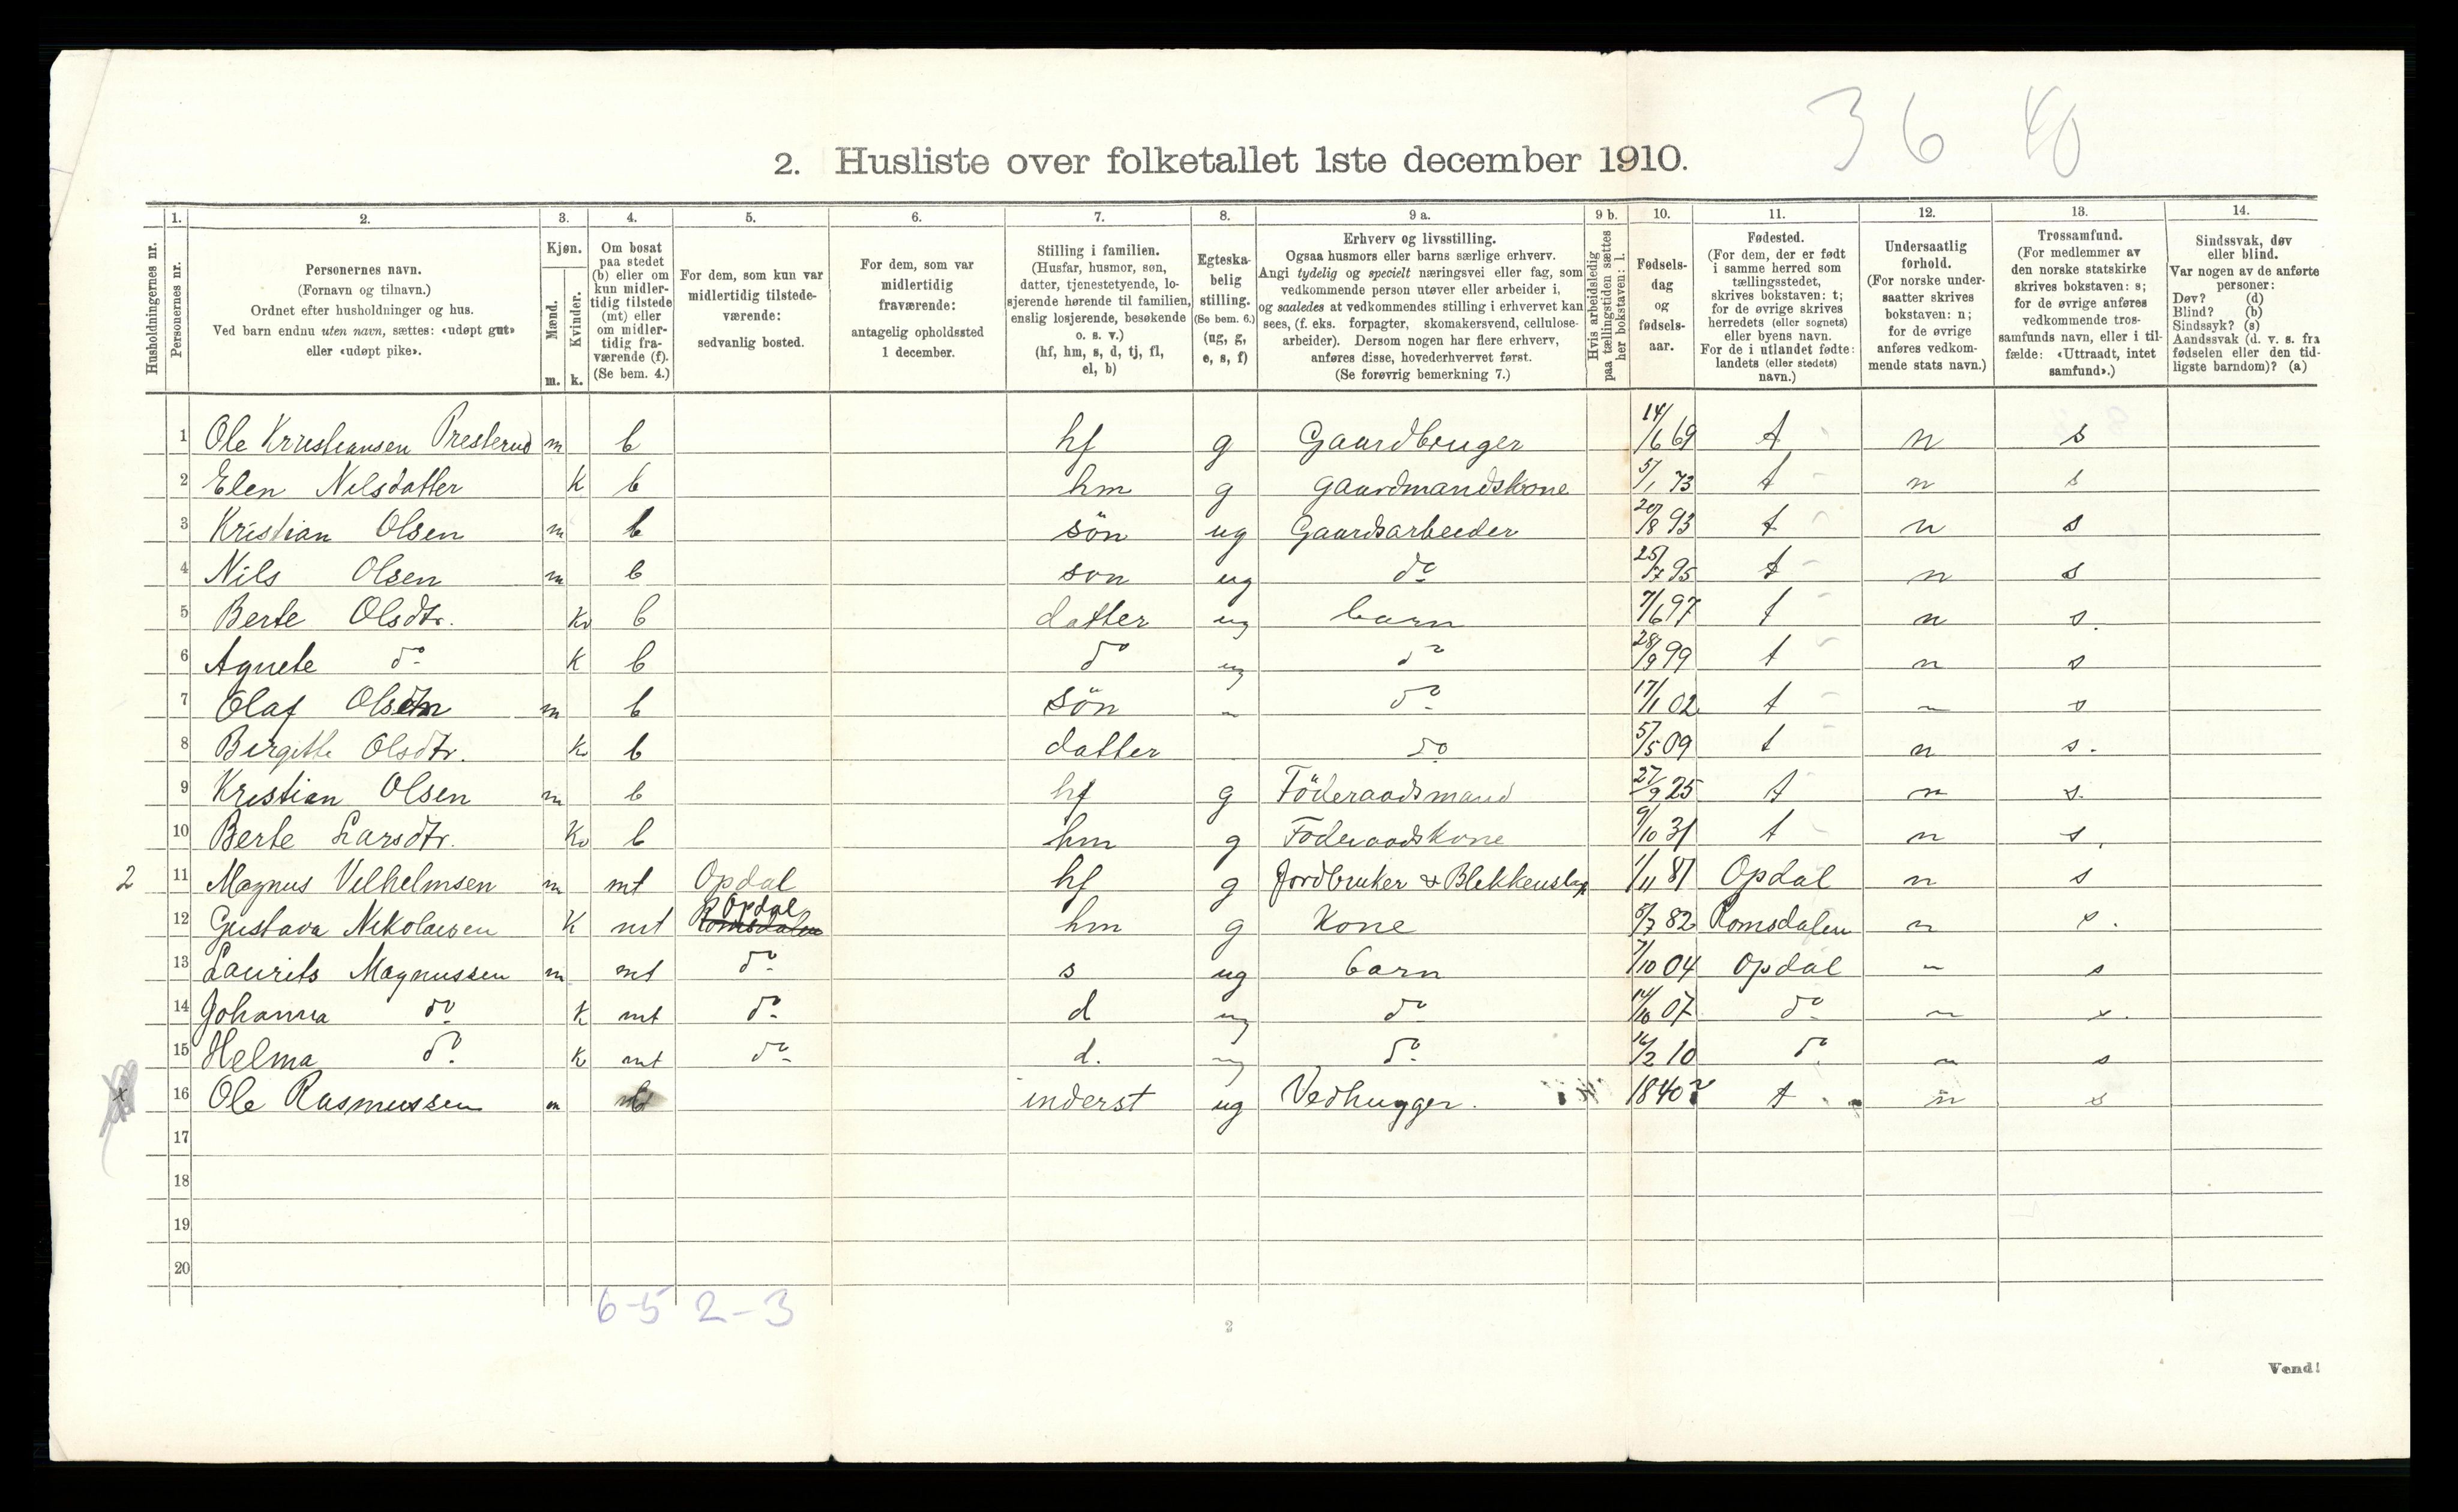 36 40
2. Husliste over folketallet 1ste december 1910.
Husholdningernes nr.
1. Personernes nr.
2. Personernes navn.
(Fornavn og tilnavn.)
Ordnet efter husholdninger og hus.
Ved barn endnu uten navn, sættes: «udøpt gut»
eller «udøpt pike».
3. Kjøn.
Mænd. m.
Kvinder. k.
4. Om bosat
paa stedet
(b) eller om
kun midler-
tidig tilstede
(mt) eller
om midler-
tidig fra-
værende (f).
(Se bem. 4.)
5. For dem, som kun var
midlertidig tilstede-
værende:
sedvanlig bosted.
6. For dem, som var
midlertidig
fraværende:
antagelig opholdssted
1 december.
7. Stilling i familien.
(Husfar, husmor, søn,
datter, tjenestetyende, lo-
sjerende hørende til familien,
enslig losjerende, besøkende
o. s. v.)
(hf, hm, s, d, tj, fl,
el, b)
8. Egteska-
belig
stilling.
(Se bem. 6.)
(ug, g,
e, s, f)
9 a. Erhverv og livsstilling.
Ogsaa husmors eller barns særlige erhverv.
Angi tydelig og specielt næringsvei eller fag, som
vedkommende person utøver eller arbeider i,
og saaledes at vedkommendes stilling i erhvervet kan
sees, (f. eks. forpagter, skomakersvend, cellulose-
arbeider). Dersom nogen har flere erhverv,
anføres disse, hovederhvervet først.
(Se forøvrig bemerkning 7.)
9 b. Hvis arbeidsledig
paa tællingstiden sættes
her bokstaven: l.
10. Fødsels-
dag
og
fødsels-
aar.
11. Fødested.
(For dem, der er født
i samme herred som
tællingsstedet,
skrives bokstaven: t;
for de øvrige skrives
herredets (eller sognets)
eller byens navn.
For de i utlandet fødte:
landets (eller stedets)
navn.)
12. Undersaatlig
forhold.
(For norske under-
saatter skrives
bokstaven: n;
for de øvrige
anføres vedkom-
mende stats navn.)
13. Trossamfund.
(For medlemmer av
den norske statskirke
skrives bokstaven: s;
for de øvrige anføres
vedkommende tros-
samfunds navn, eller i til-
fælde: «Uttraadt, intet
samfund».)
14. Sindssvak, døv
eller blind.
Var nogen av de anførte
personer:
Døv? (d)
Blind? (b)
Sindssyk? (s)
Aandssvak (d. v. s. fra
fødselen eller den tid-
ligste barndom)? (a)
1 Ole Kristiansen Presterud m b hf g Gaardbruger 14/6 69 t n s
2 Elen Nilsdatter K b hm g gaardmandskone 5/1 73 t n s
3 Kristian Olsen m b sön ug Gaardsarbeider 20/8 93 t n s
4 Nils Olsen m b son ug do 25/7 95 t n s
5 Berte Olsdtr. Kv b datter ug barn 7/6 97 t n s.
6 Agnete do K b do ug do 28/9 99 t n s
7 Olaf Olsen m b sön " do 17/1 02 t n s
8 Birgitte Olsdtr. K b datter do 5/5 09 t n s.
9 Kristian Olsen m b hf g Föderaadsmand 27/9 25 t n s.
10 Berte Larsdtr. Kv b hm g Föderaadskone 9/10 31 t n s.
2 11 Magnus Vilhelmsen m mt Opdal hf g Jordbruker & Blekkenslag 1/11 81 Opdal n s
12 Gustava Nikolaisen K mt Romsdalen Opdal hm g Kone 5/7 82 Romsdalen n s.
13 Laurits Magnussen m mt do s ug barn 7/10 04 Opdal n s
14 Johanna do K mt do d ug do 14/10 07 do n s.
15 Helma do K mt do d. ug do 16/2 10 do n s
x 16 Ole Rasmussen m b inderst ug Vedhugger. 1840? t n s
17
18
19
20
6-5 2-3
2
Vend!